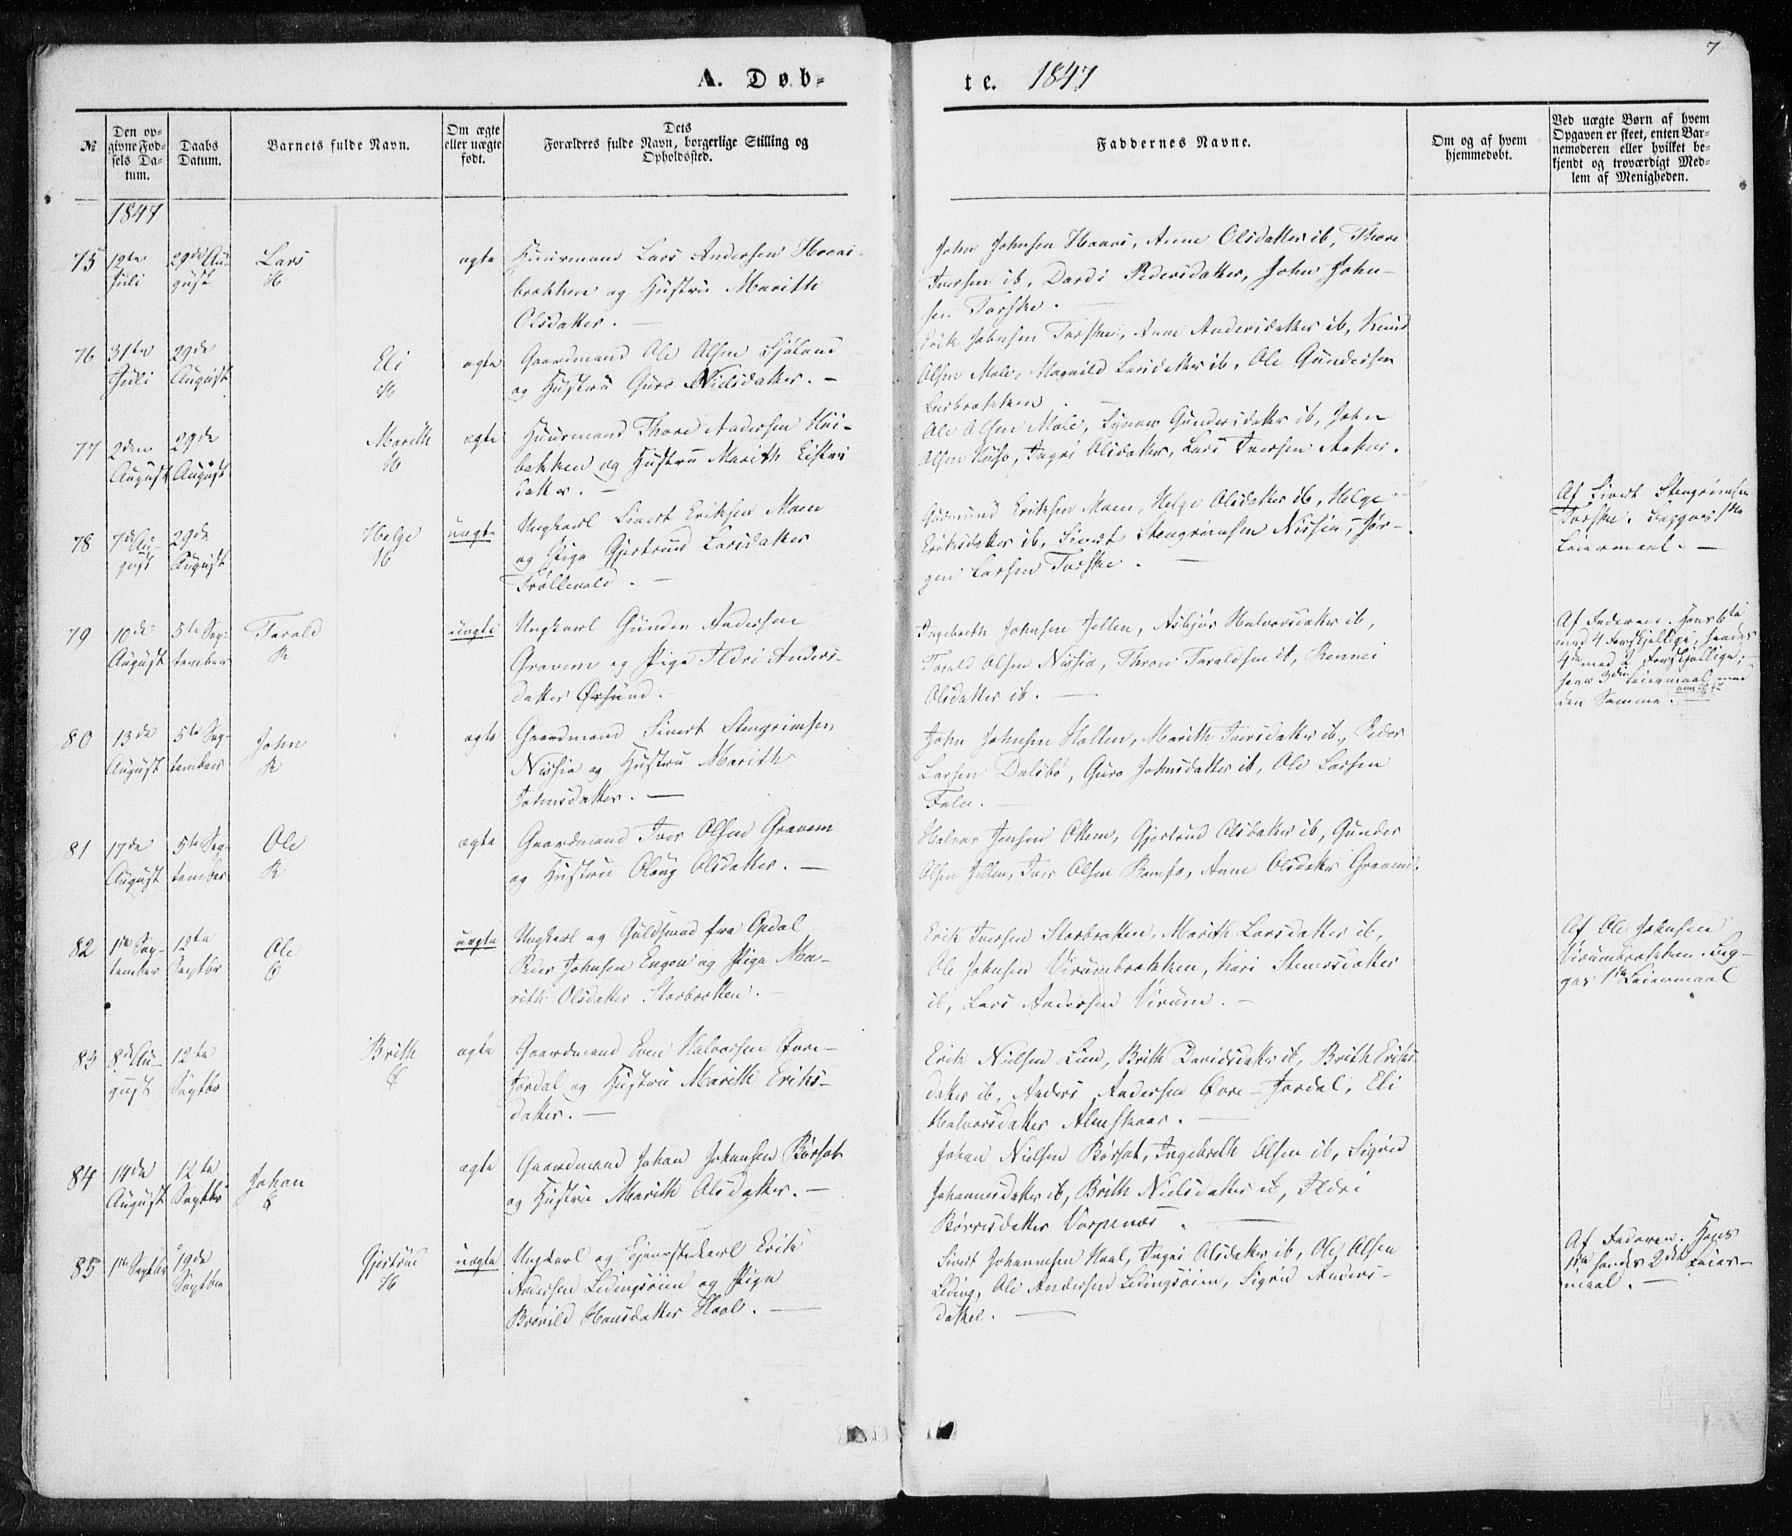 7
A. Døbte. 1847
№
Den opgivne Fødsels Datum.
Daabs Datum.
Barnets fulde Navn.
Om ægte eller uægte født.
Dets Forældres fulde Navn, borgerlige Stilling og Opholdssted.
Faddernes Navne.
Om og af hvem hjemmedøbt.
Ved uægte Børn af hvem Opgaven er skeet, enten Barnemoderen eller hvilket bekjendt og troværdigt Medlem af Menigheden.
1847
75 19de Juli 29de August Lars H ægte
Huusmand Lars Andersen
brækken og Hustru Marith
Olsdatter. —
John Johnsen Haaas, Anne Olsdatter ib, Thore
Iversen ib, Dordi Pedersdatter, John John-
sen Torske.
76 31te Juli 29de August Eli H ægte
Gaardmand Ole Olsen
og Hustru Guro Nielsdatter. —
Erik Johnsen Torske, Anne Andersdatter ib, Knud
Olsen Male, Magnild Larsdatter ib, Ole Gundersen
77 2den August 29de August Marith H ægte
Huusmand Thore Andersen Høi-
bakken og Hustru Marith
datter. —
Ole Olsen Male, Gundersdatter ib, John
Olsen, Ingri Olsdatter, Lars Iversen
78 7de August 29de August Helge H uægte
Ungkarl Sivert Eriksen Moen
og Pige Gjertrud Larsdatter
Trøllevold. —
Gudmund Eriksen Moen, Helge Olsdatter ib, Helge
Eriksdatter ib, Sivert Stengrimsen Nisja, Jør-
gen Larsen Torske.
Af Sivert Stengrimsen
Torske. Begges
Leiermaal. —
79 10de August 5te September Tarald R uægte
Ungkarl Gunder Andersen
Gravem og Pige Ildri Anders-
datter Ørsund. —
Ingebreth Johnsen Jellen, Asbjør Halvorsdatter ib,
Tarald Olsen Nisja, Thron Taraldsen ib, Rønnei
Olsdatter ib. —
Af Faderen. Hans 6te
med 4 forskjellige, hendes
4de med 2 forskjellige;
hans 3die Leiermaal med
den Samme.
80 13de August 5te September John R ægte
Gaardmand Sivert Stengrimsen
Nisja og Hustru Marith
Johnsdatter. —
John Johnsen Hallen, Marith Iversdatter ib, Peder
Larsen Dalsbø, Guro Johnsdatter ib, Ole Larsen
Fale. —
81 17de August 5te September Ole R ægte
Gaardmand Iver Olsen Gravem
og Hustru Olaug Olsdatter. —
Halvor Jensen Okem, Gjertrud Olsdatter ib, Gunder
Olsen Jellen, Iver Olsen Romfo, Anne Olsdatter Gravem.
82 1ste September 12te Septbr Ole E uægte
Ungkarl og Guldsmed fra Opdal
Peder Johnsen Engen og Pige Ma-
rith Olsdatter Storbrækken. —
Erik Iversen Storbrækken, Marith Larsdatter ib,
Ole Johnsen Virumbrækken, Kari Stenersdatter
ib, Lars Andersen Virum. —
Af Ole Johnsen
Virumbrækken. Beg-
ges 1ste Leiermaal
83 8de August 12te Septbr Brith E ægte
Gaardmand Even Halvorsen Øvre-
Jordal og Hustru Marith Eriks-
datter. —
Erik Nielsen Lien, Brith Davidsdatter ib, Brith Eriks-
datter ib, Anders Andersen Øvre-Jordal, Eli
Halvorsdatter Almskaar. —
84 14de August 12te Septbr Johan E ægte
Gaardmand Johan Johansen Børset
og Hustru Marith Olsdatter. —
Johan Nielsen Børset, Ingebreth Olsen ib, Sigrid
Johannesdatter ib, Brith Nielsdatter ib, Ildri
Børresdatter Vorpenæs. —
85 1ste Septbr 19de Septbr Gjertrud H uægte
Ungkarl og Tjenestekarl Erik
Andersen Ledingsøien og Pige
Brøvild Hansdatter Hoel. —
Sivert Johannesen Hoel, Ingri Olsdatter ib, Ole Olsen
Leding, Ole Andersen Ledingsøien, Sigrid Anders-
datter. —
Af Faderen. Hans
1ste hendes 2det Leier-
maal. —